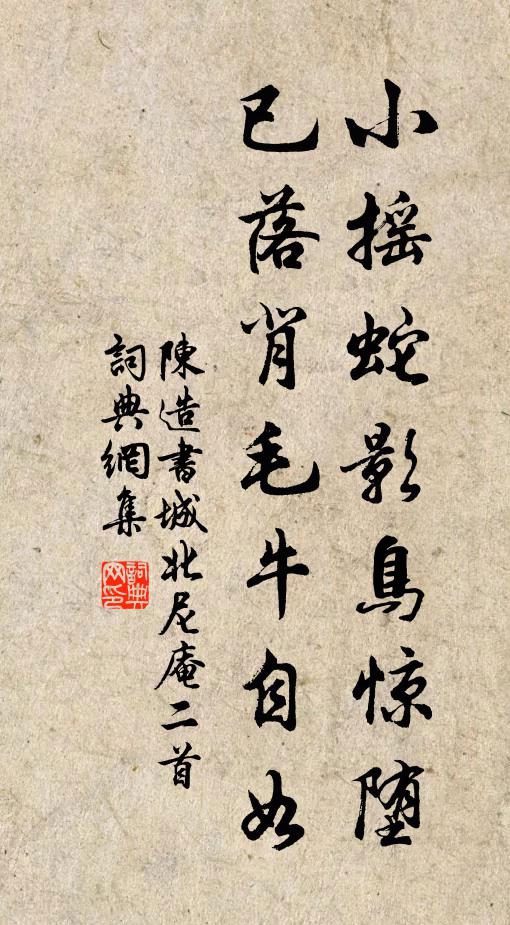 小摇蛇影鳥惊堕
已落背毛牛自如
陳造書城北尼庵二首
詞典網集
詞典
网印